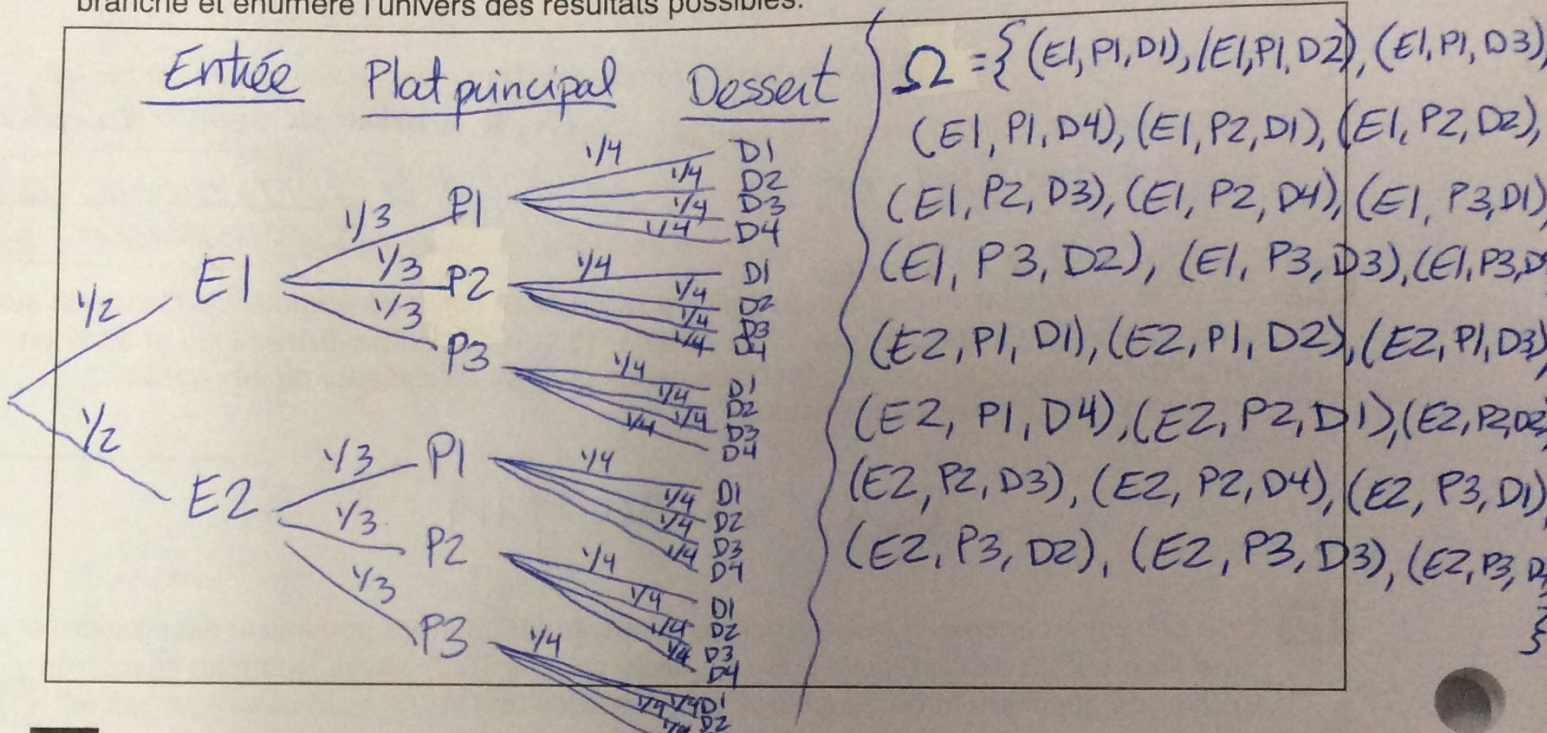 branche et énumère l'univers des résultats possibles.
Entrée Plat principal Dessert
1/2 E1
1/3 P1
1/4 D1
1/4 D2
1/4 D3
1/4 D4
1/3 P2
1/4 D1
1/4 D2
1/4 D3
1/4 D4
1/3 P3
1/4 D1
1/4 D2
1/4 D3
1/4 D4
1/2 E2
1/3 P1
1/4 D1
1/4 D2
1/4 D3
1/4 D4
1/3 P2
1/4 D1
1/4 D2
1/4 D3
1/4 D4
1/3 P3
1/4 1/4 D1
1/4 D2
1/4
Ω = { (E1, P1, D1), (E1, P1, D2), (E1, P1, D3),
(E1, P1, D4), (E1, P2, D1), (E1, P2, D2),
(E1, P2, D3), (E1, P2, D4), (E1, P3, D1),
(E1, P3, D2), (E1, P3, D3), (E1, P3, D
(E2, P1, D1), (E2, P1, D2), (E2, P1, D3)
(E2, P1, D4), (E2, P2, D1), (E2, P2, D2)
(E2, P2, D3), (E2, P2, D4), (E2, P3, D1),
(E2, P3, D2), (E2, P3, D3), (E2, P3, D
}